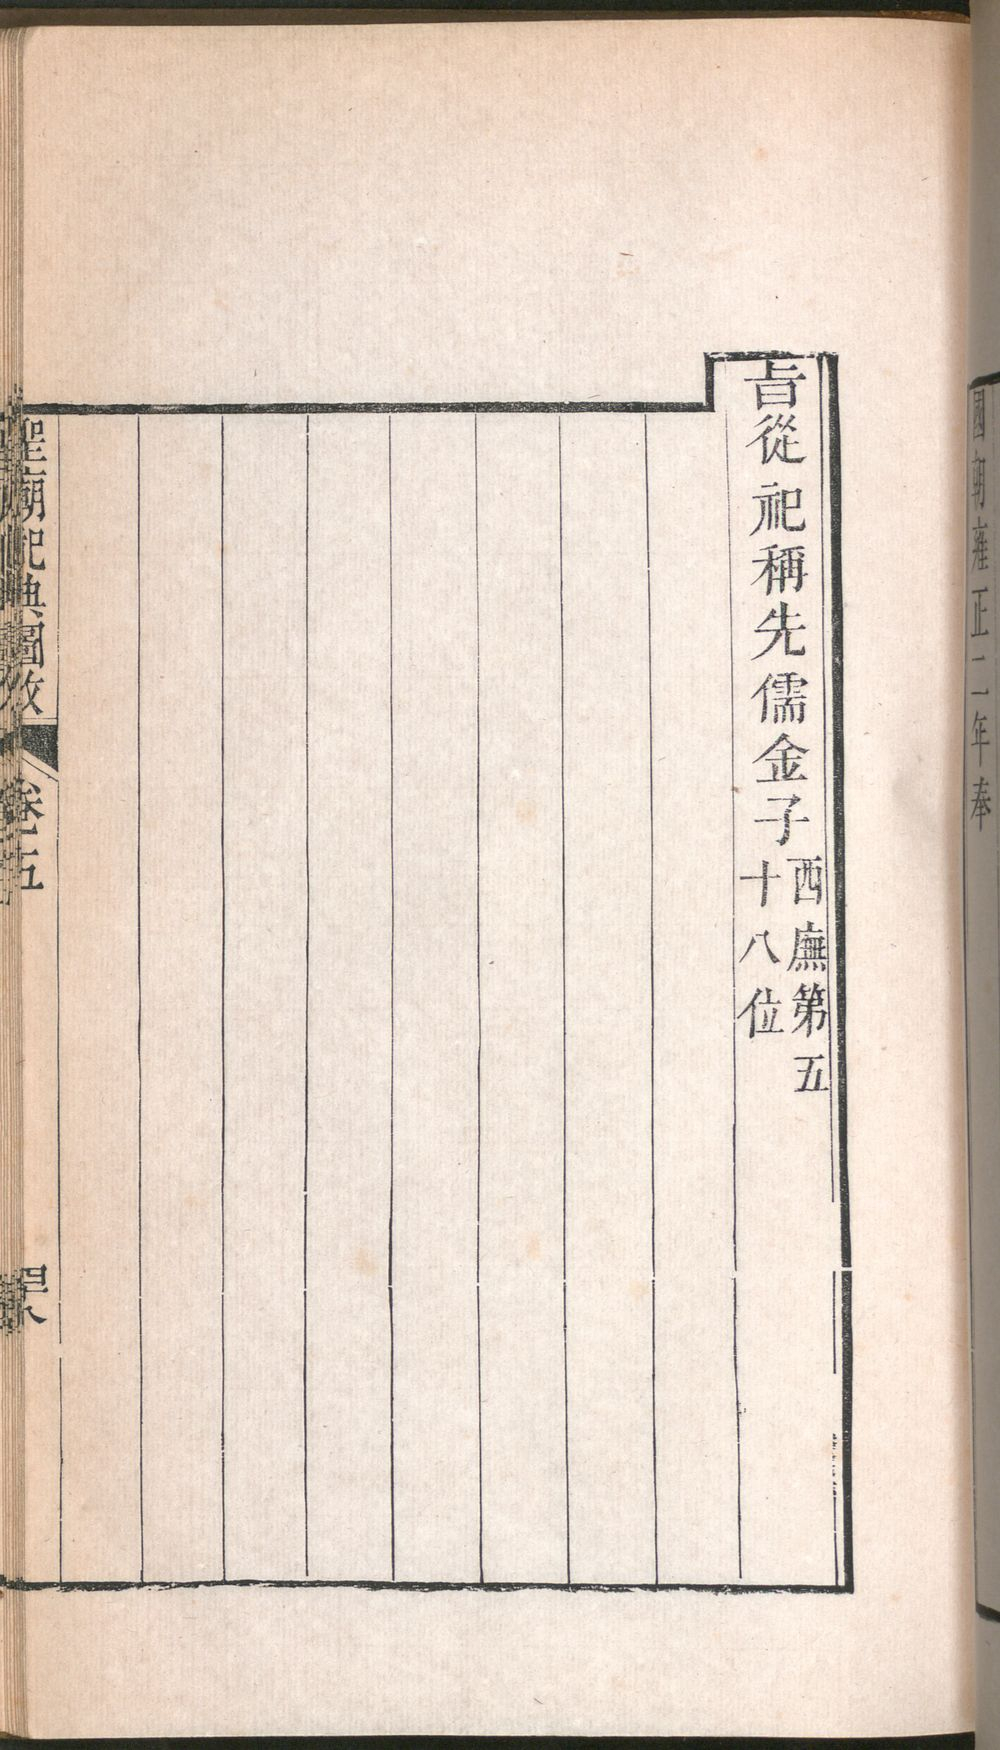 國朝雍正二年奉
旨從祀稱先儒金子
西廡第五
十八位
聖廟祀典圖攷
卷五